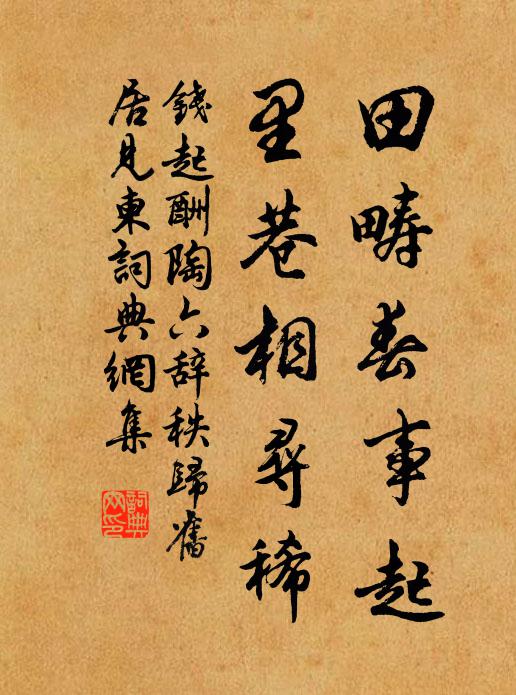 田疇春事起
里巷相尋稀
錢起酬陶六辞秩歸舊
居見柬詞典網集
詞典
网印